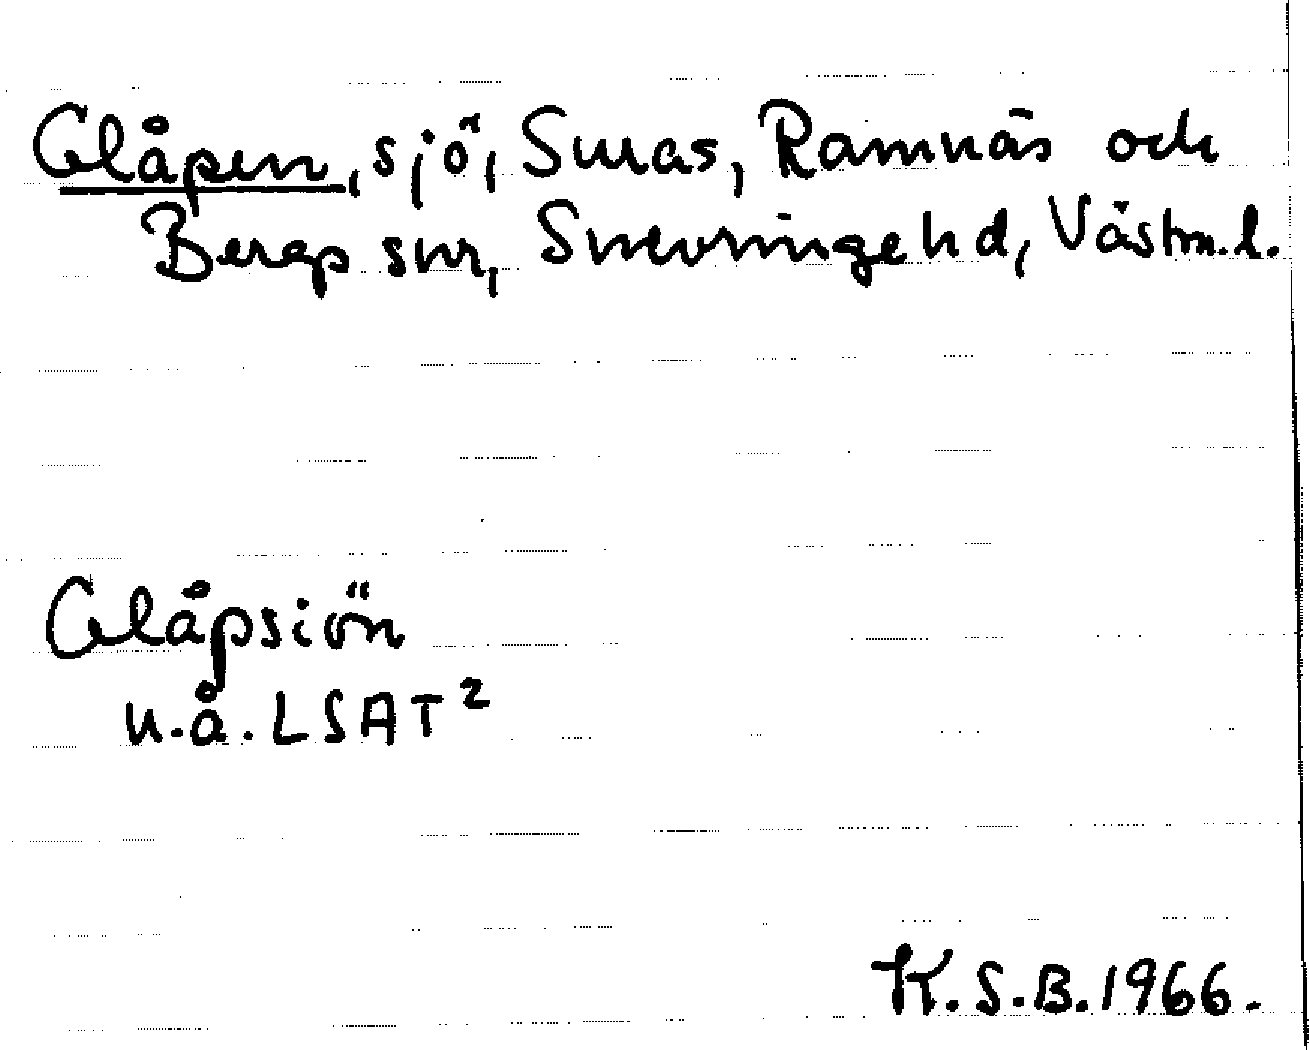 Glåpen, sjö, Suras, Ramnäs och
Bergs snr, Snevringe hd, Västm. l.
Glåpsiön
u.å. LSAT²
K.S.B. 1966.